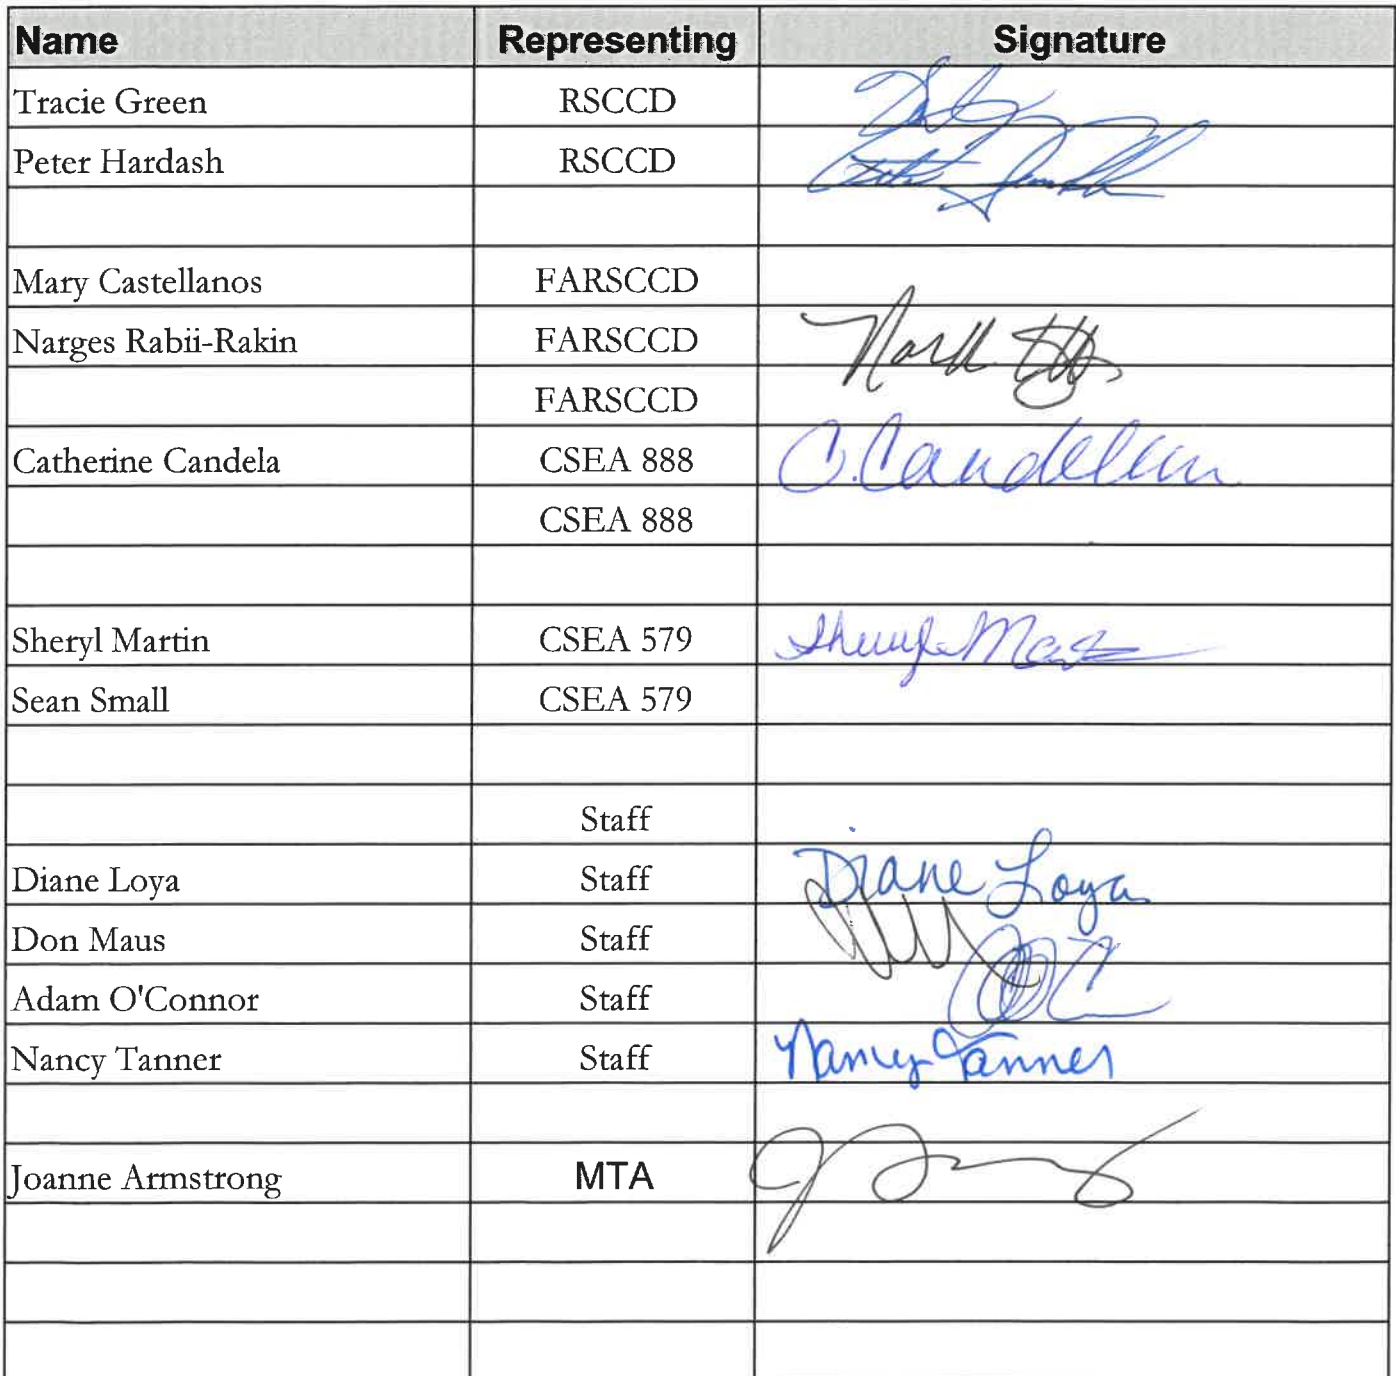 Name Representing Signature
Tracie Green RSCCD
Peter Hardash RSCCD
Mary Castellanos FARSCCD
Narges Rabii-Rakin FARSCCD
FARSCCD
Catherine Candela CSEA 888 C. Candela
CSEA 888
Sheryl Martin CSEA 579 Sheryl Mart
Sean Small CSEA 579
Staff
Diane Loya Staff Diane Loya
Don Maus Staff
Adam O'Connor Staff
Nancy Tanner Staff Nancy Tanner
Joanne Armstrong MTA